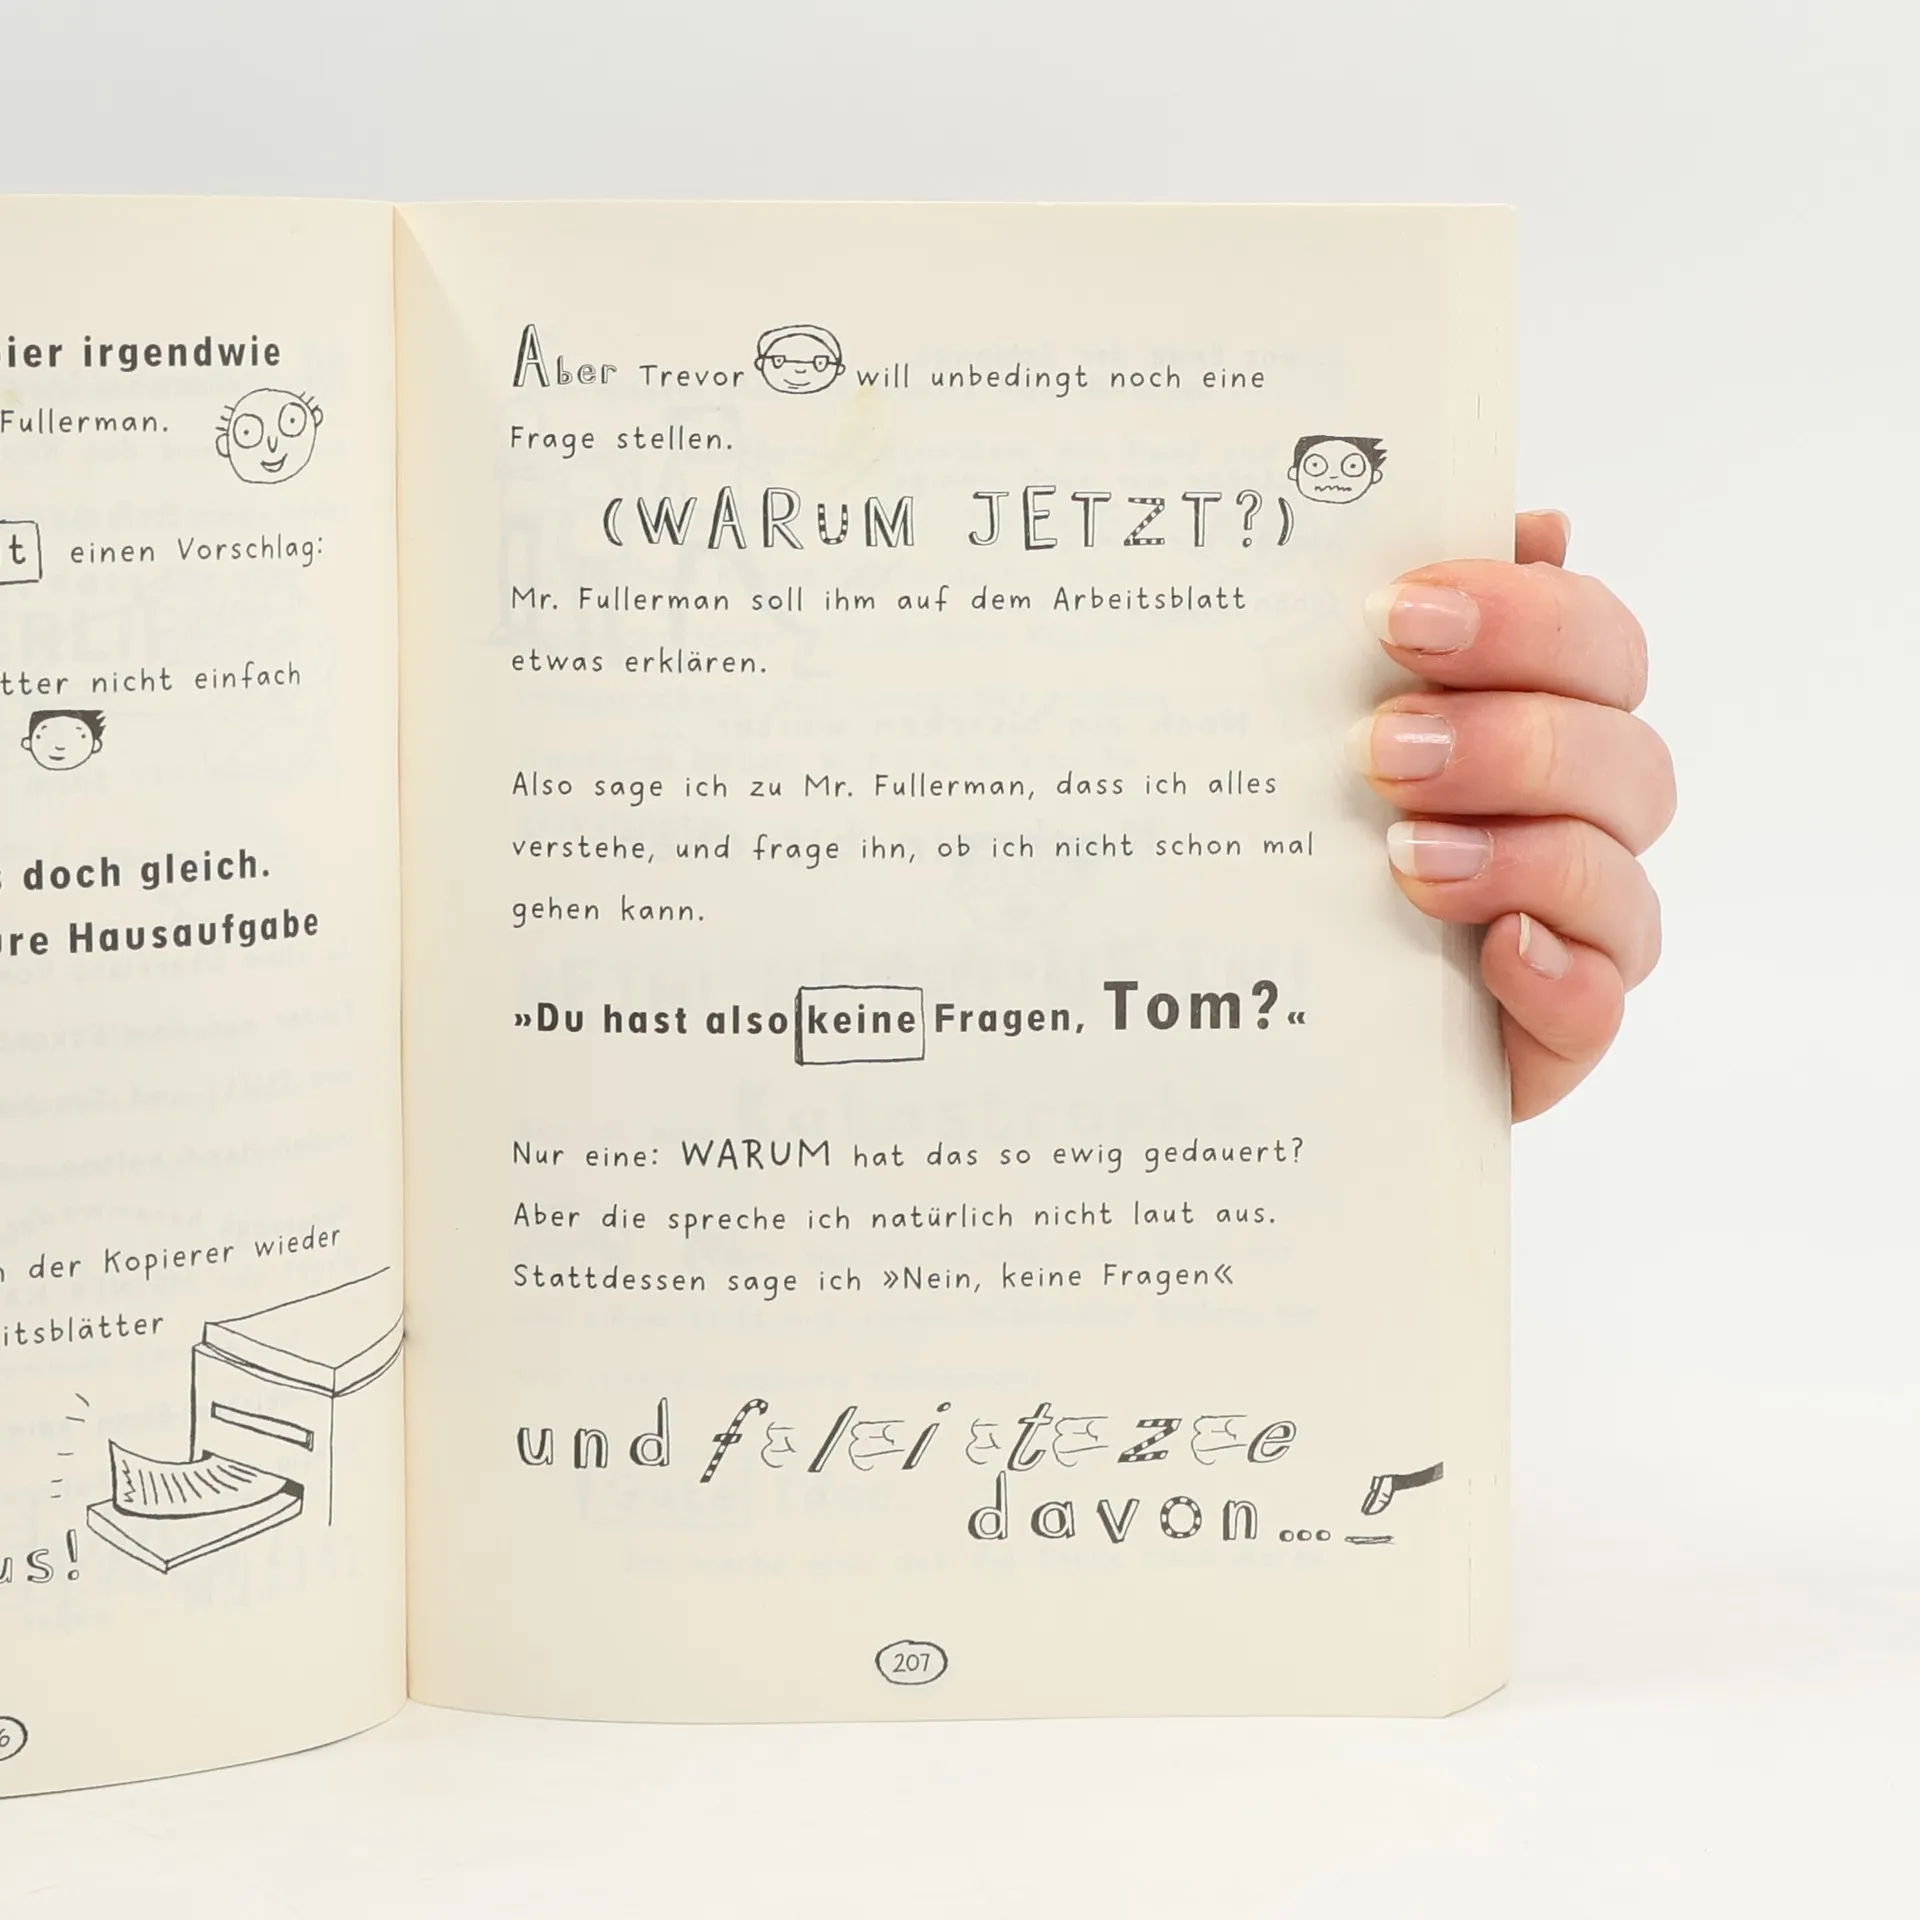 irgendwie
Fullerman.
einen Vorschlag:
nicht einfach
doch gleich.
Hausaufgabe
der Kopierer wieder
Aber Trevor will unbedingt noch eine
Frage stellen.
(WARUM JETZT?)
Mr. Fullerman soll ihm auf dem Arbeitsblatt
etwas erklären.
Also sage ich zu Mr. Fullerman, dass ich alles
verstehe, und frage ihn, ob ich nicht schon mal
gehen kann.
»Du hast also keine Fragen, Tom?«
Nur eine: WARUM hat das so ewig gedauert?
Aber die spreche ich natürlich nicht laut aus.
Stattdessen sage ich »Nein, keine Fragen«
und flitze
davon...
207